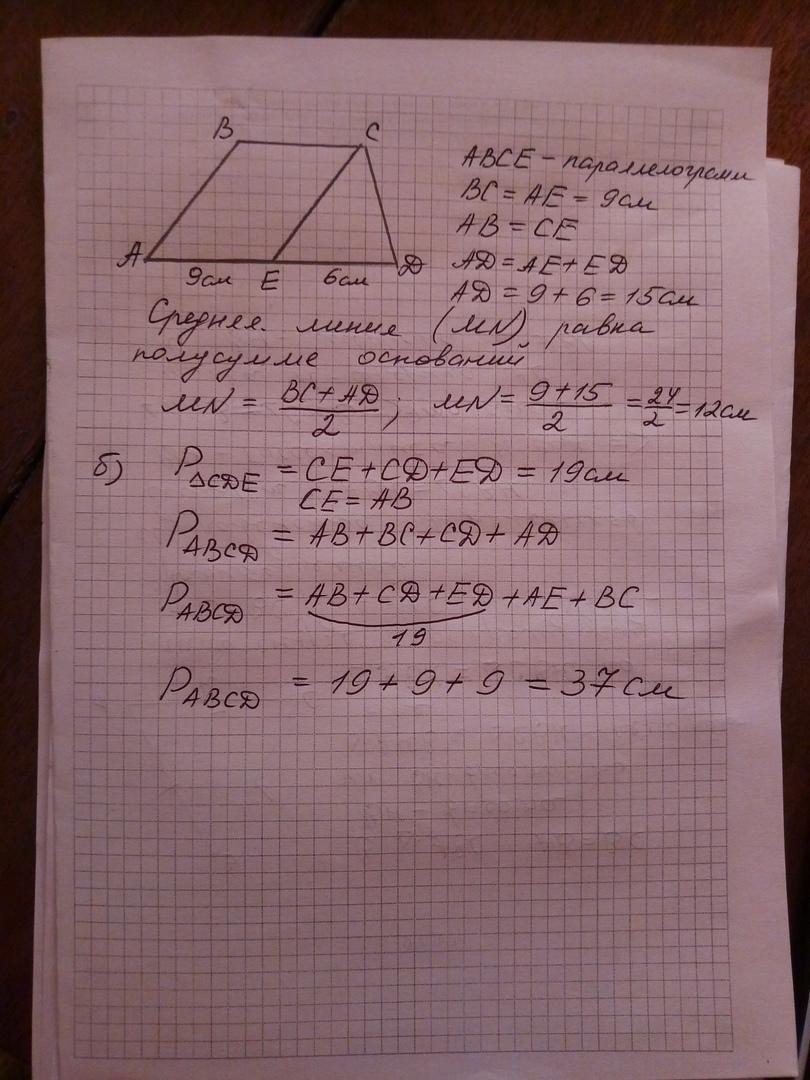 B C
A 9см E 6см D
ABCE - параллелограмм
BC = AE = 9см
AB = CE
AD = AE + ED
AD = 9 + 6 = 15см
Средняя линия (MN) равна
полусумме оснований
MN = (BC + AD)/2 ; MN = (9 + 15)/2 = 24/2 = 12см
б) P△CDE = CE + CD + ED = 19см
CE = AB
PABCD = AB + BC + CD + AD
PABCD = AB + CD + ED + AE + BC
19
PABCD = 19 + 9 + 9 = 37см